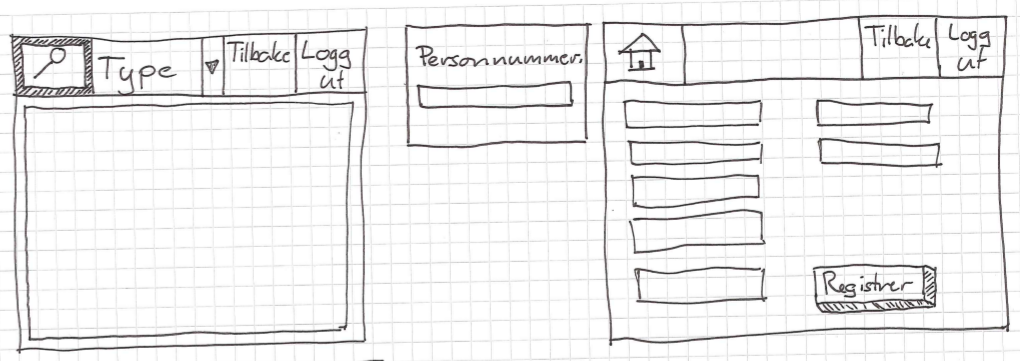 Type
Tilbake
Logg
ut
Personnummer.
Tilbake
Logg
ut
Registrer